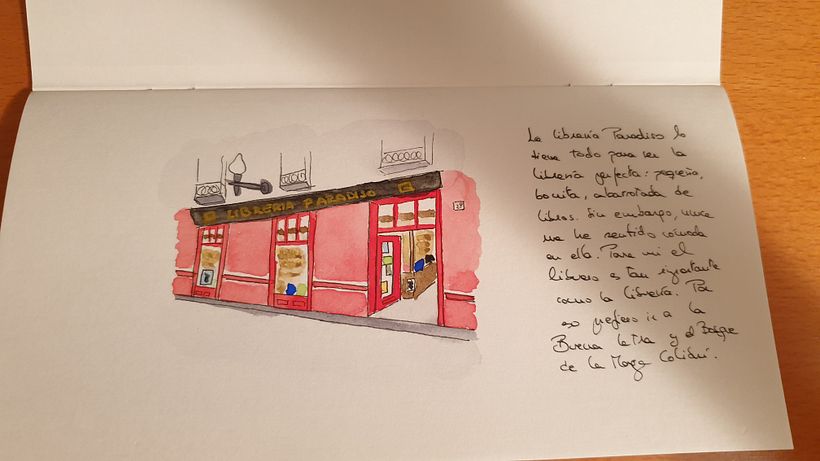 LIBRERIA PARADISO
La librería Paradiso lo
tiene todo para ser la
librería perfecta: pequeña,
bonita, abarrotada de
libros. Sin embargo, nunca
me he sentido cómoda
en ella. Para mi el
librero es tan importante
como la librería. Por
eso prefiero ir a la
Buena letra y el Bosque
de la Maga Colibrí.